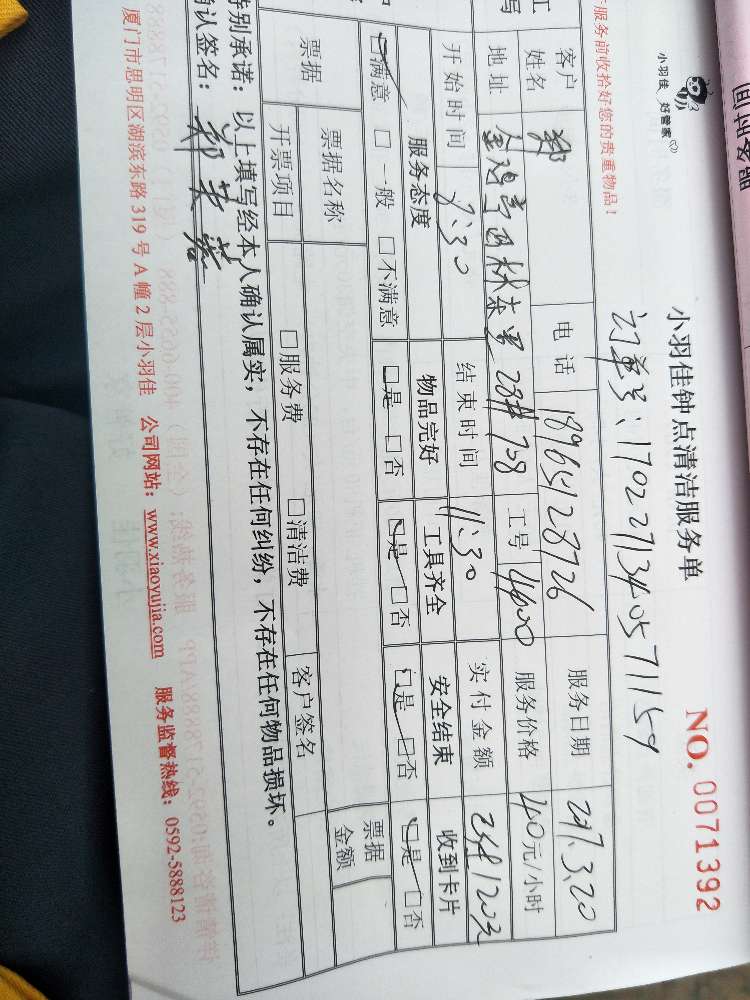 小羽佳 好管家
小羽佳钟点清洁服务单
NO. 0071392
订单号:1702271340571159
服务前收拾好您的贵重物品!
客户姓名 郑 电话 18965128726 服务日期 2017.3.20
地址 28#708 工号 4600 服务价格 40元/小时
开始时间 8:30 结束时间 11:30 实付金额
服务态度 物品完好 工具齐全 安全结束 收到卡片
☑满意 □一般 □不满意 □是 □否 □是 □否 □是 □否 □是 □否
票据 票据名称 票据金额
开票项目 □服务费 □清洁费 客户签名
特别承诺:以上填写经本人确认属实,不存在任何纠纷,不存在任何物品损坏。
确认签名:
厦门市思明区湖滨东路 319 号 A 幢 2 层小羽佳 公司网站:www.xiaoyujia.com 服务监督热线:0592-5888123